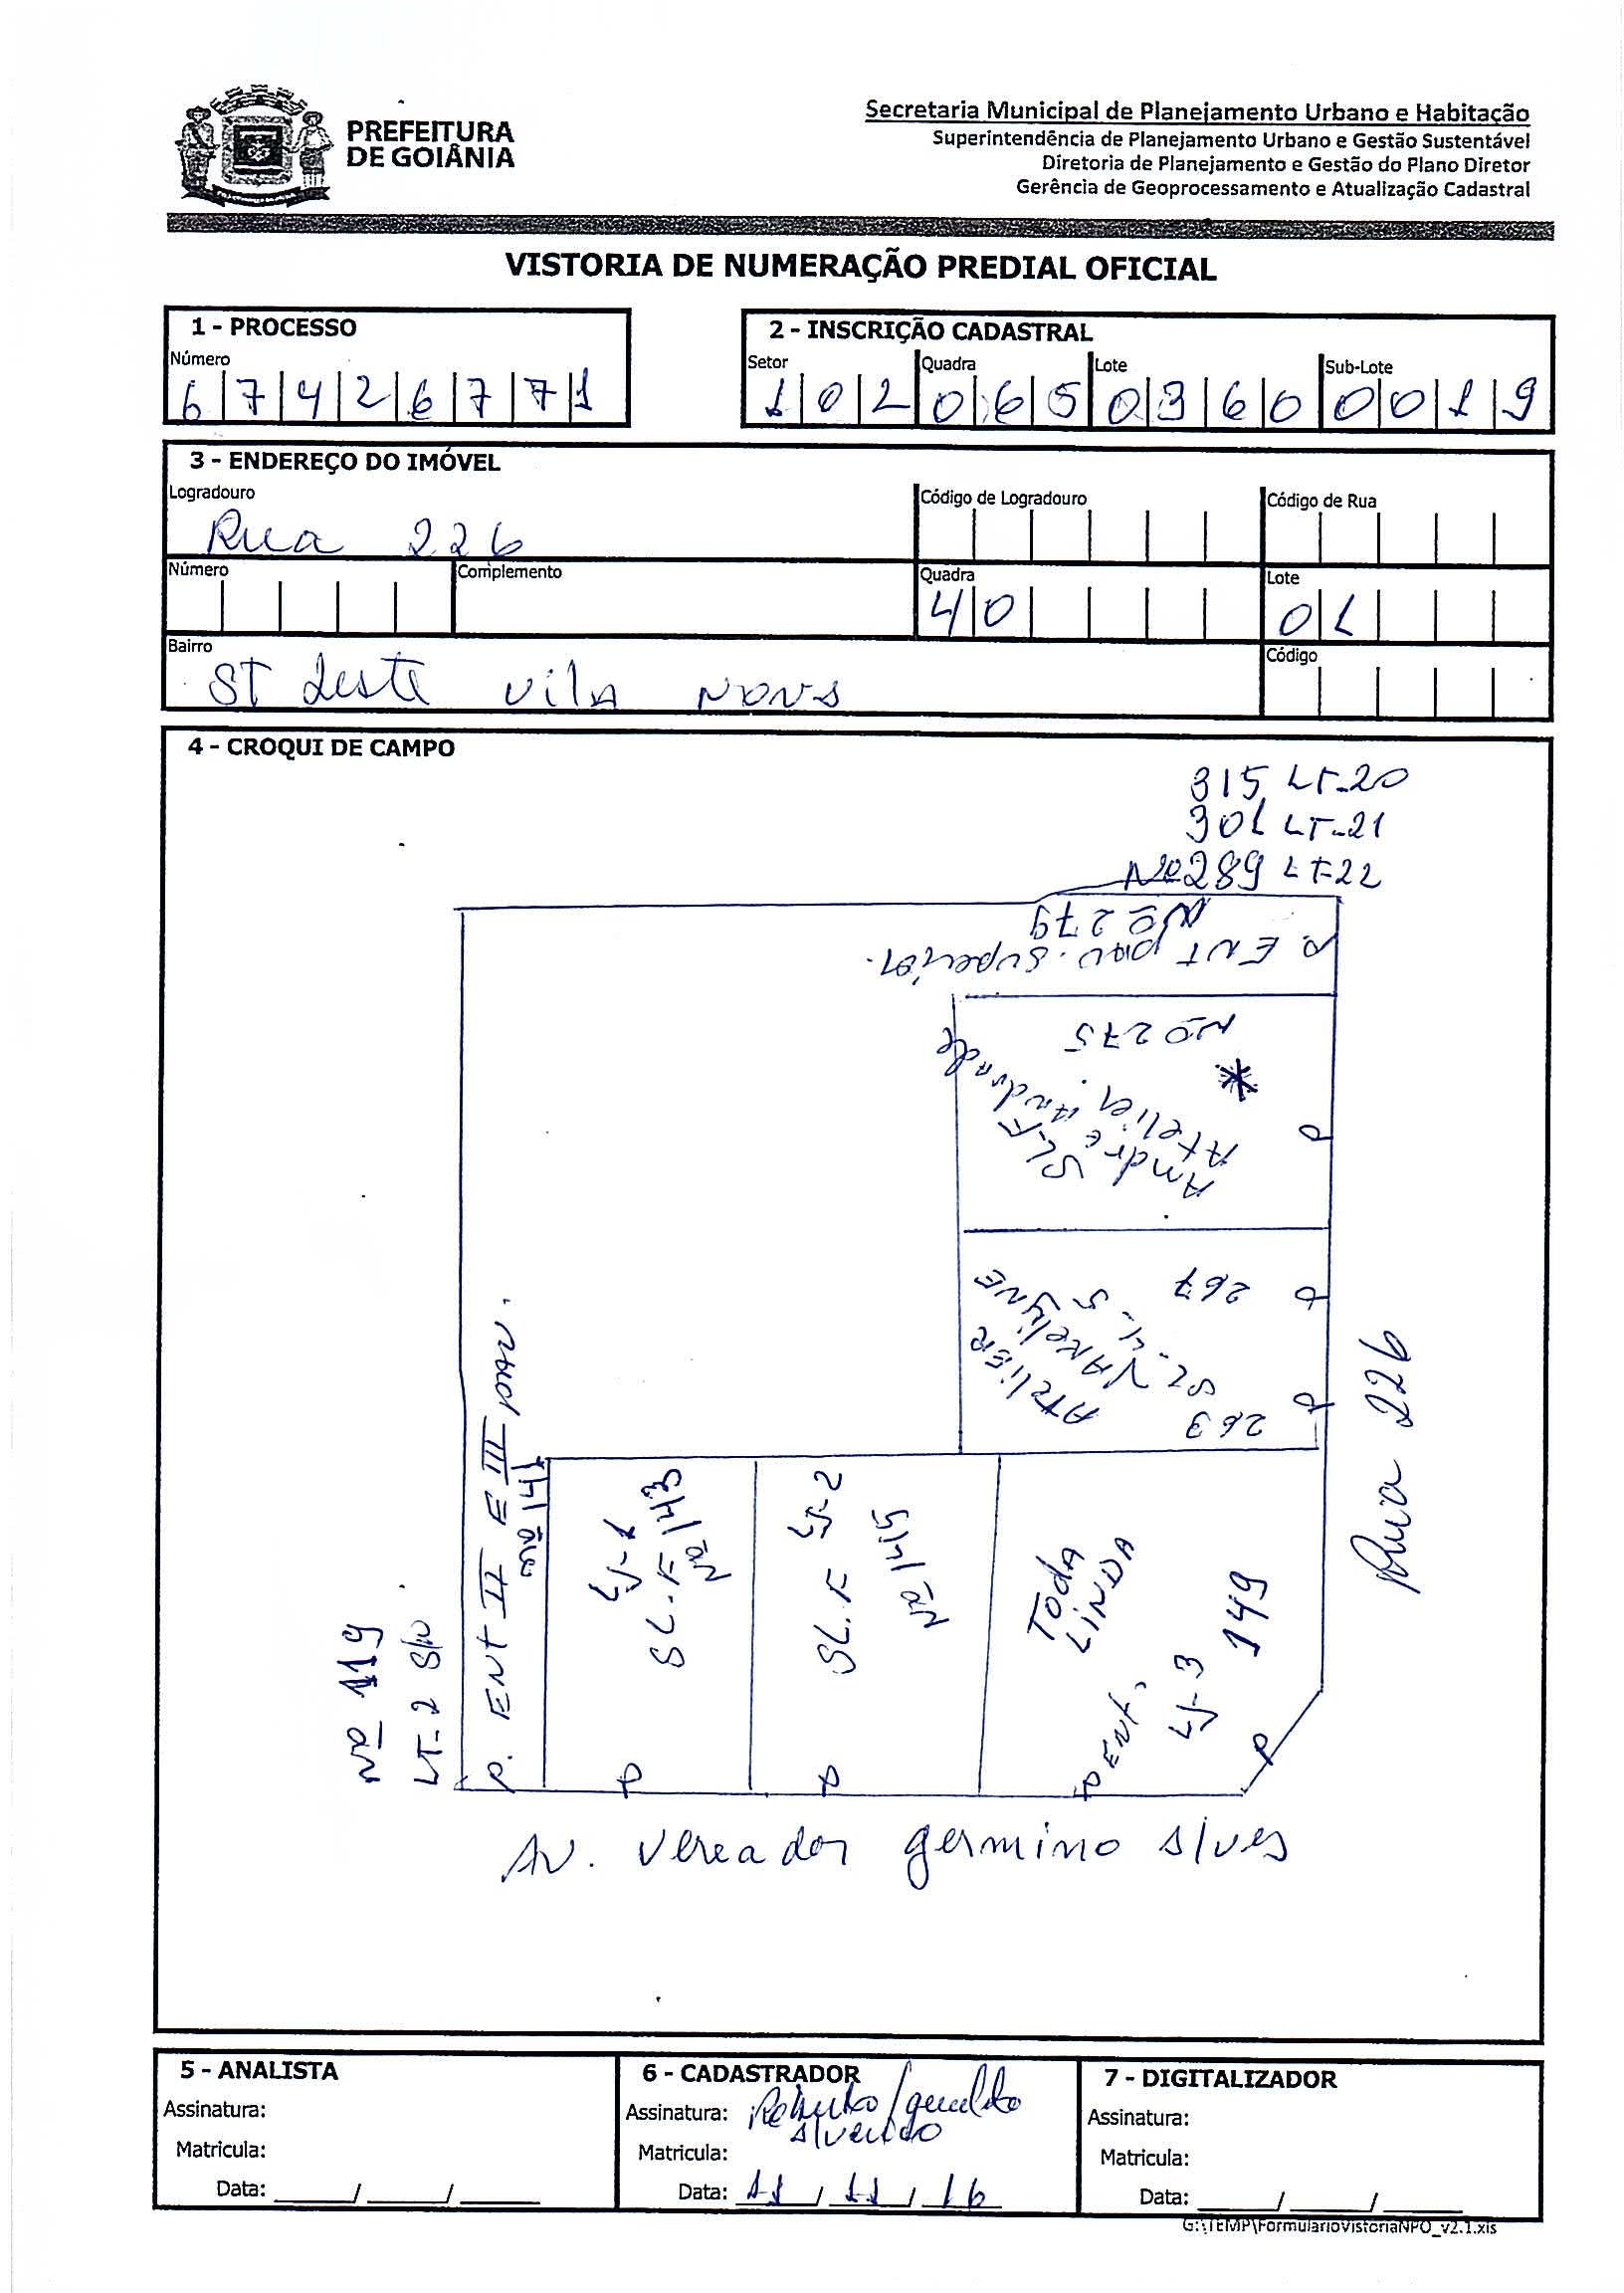 PREFEITURA
DE GOIÂNIA
Secretaria Municipal de Planejamento Urbano e Habitação
Superintendência de Planejamento Urbano e Gestão Sustentável
Diretoria de Planejamento e Gestão do Plano Diretor
Gerência de Geoprocessamento e Atualização Cadastral
VISTORIA DE NUMERAÇÃO PREDIAL OFICIAL
1 - PROCESSO
Número
6 7 4 2 6 7 7 1
2 - INSCRIÇÃO CADASTRAL
Setor Quadra Lote Sub-Lote
1 0 2 0 6 5 0 3 6 0 0 0 1 9
3 - ENDEREÇO DO IMÓVEL
Logradouro Código de Logradouro Código de Rua
Rua 226
Número Complemento Quadra Lote
40 01
Bairro Código
ST Leste Vila Nova
4 - CROQUI DE CAMPO
315 LT-20
301 LT-21
Nº 289 LT-22
Nº 279
P. ENT pav. superior.
Nº 275
*
Atelier
André Andrade
SL.F
P
267
P
ATELIER
VANELYNE
SL. 4. 5
263
P
Rua 226
Nº 119
LT-2 S/N
P. ENT II E III pav.
Nº 141
LJ-1
SL.F
Nº 143
P
LJ-2
SL.F
Nº 145
P
TODA
LINDA
149
LJ-3
P ENT.
P
Av. Vereador germino Alves
5 - ANALISTA
Assinatura:
Matricula:
Data: ____/____/____
6 - CADASTRADOR
Assinatura:
Matricula:
Data: 11/11/16
7 - DIGITALIZADOR
Assinatura:
Matricula:
Data: ____/____/____
G:\TEMP\FormularioVistoriaNPO_v2.1.xls